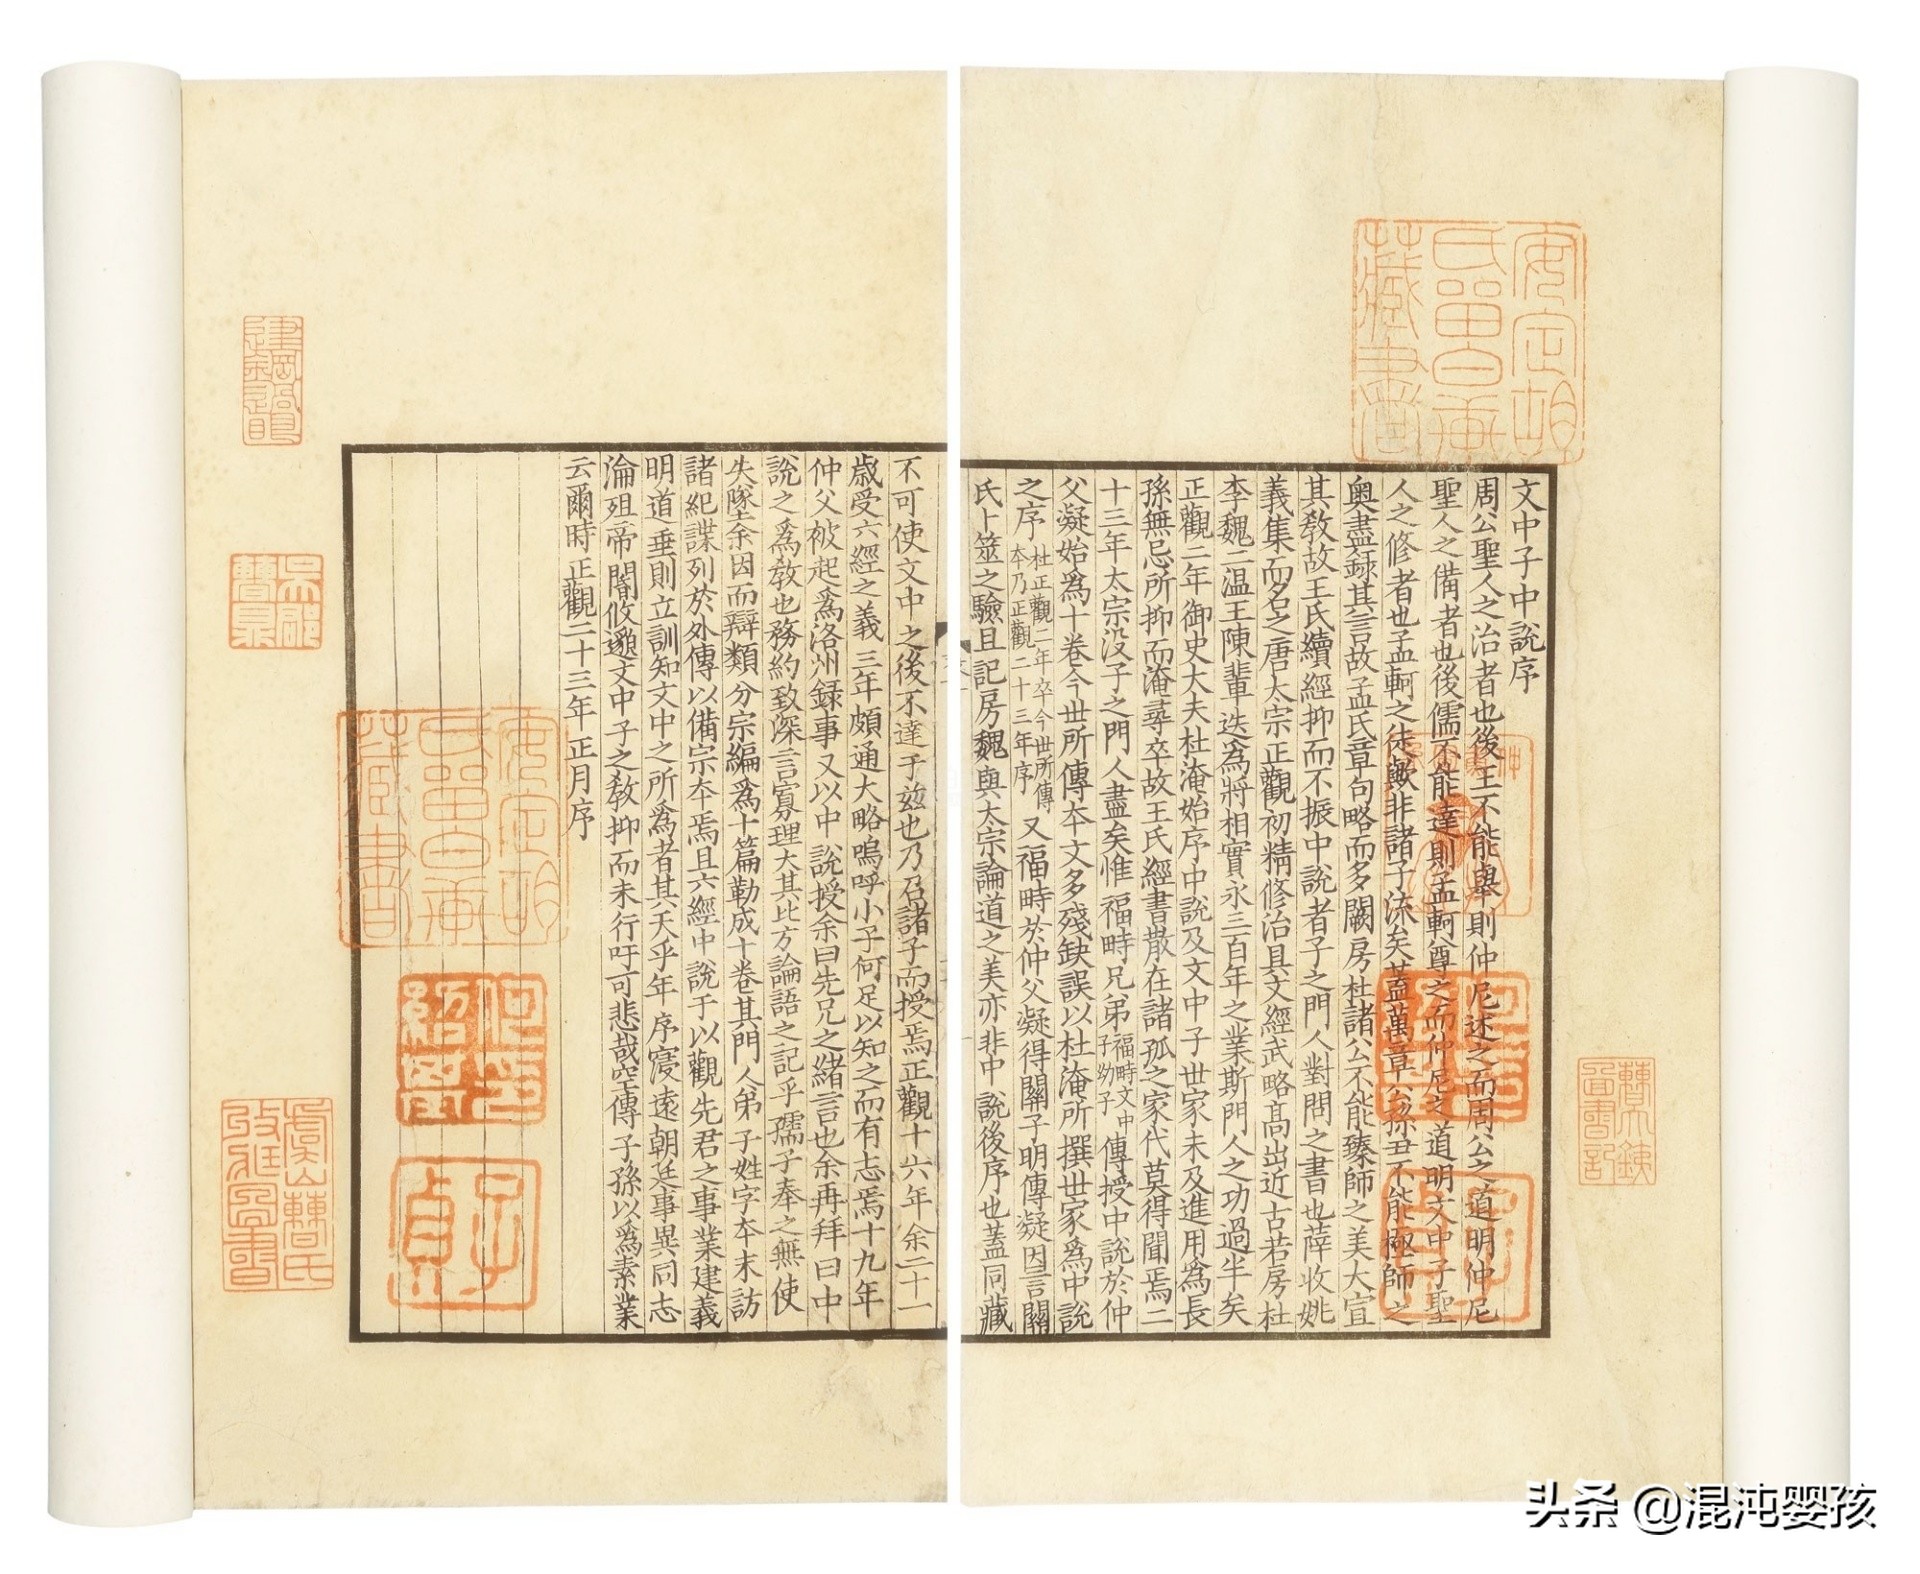 文中子中說序
周公聖人之治者也後王不能舉則仲尼述之而周公之道明仲尼
聖人之備者也後儒不能達則孟軻尊之而仲尼之道明文中子聖
人之修者也孟軻之徒歟非諸子流矣蓋萬章公孫丑不能極師之
奧盡錄其言故孟氏章句略而多闕房杜諸公不能臻師之美大宣
其教故王氏續經抑而不振中說者子之門人對問之書也薛收姚
義集而名之唐太宗正觀初精修治具文經武略高出近古若房杜
李魏二温王陳輩迭爲將相實永三百年之業斯門人之功過半矣
正觀二年御史大夫杜淹始序中說及文中子世家未及進用爲長
孫無忌所抑而淹尋卒故王氏經書散在諸孤之家代莫得聞焉二
十三年太宗没子之門人盡矣惟福畤兄弟福畤文中子幼子傳授中說於仲
父凝始爲十卷今世所傳夲文多殘缺誤以杜淹所撰世家爲中說
之序杜正觀二年卒今世所傳本乃正觀二十三年序又福畤於仲父凝得關子明傳凝因言關
氏卜筮之驗且記房魏與太宗論道之美亦非中說後序也蓋同藏
不可使文中之後不達于兹也乃召諸子而授焉正觀十六年余二十一
歳受六經之義三年頗通大略嗚呼小子何足以知之而有志焉十九年
仲父被起爲洛州録事又以中說授余曰先兄之緒言也余再拜曰中
說之爲教也務約致深言寡理大其比方論語之記乎孺子奉之無使
失墜余因而辯類分宗編爲十篇勒成十卷其門人弟子姓字夲末訪
諸紀諜列於外傳以備宗夲焉且六經中說于以觀先君之事業建義
明道垂則立訓知文中之所爲者其天乎年序寖遠朝廷事異同志
淪殂帝閽攸邈文中子之教抑而未行吁可悲哉空傳子孫以爲素業
云爾時正觀二十三年正月序
安定胡
氏藏書
何印
紹基
子
貞
虞山
头条 @混沌婴孩